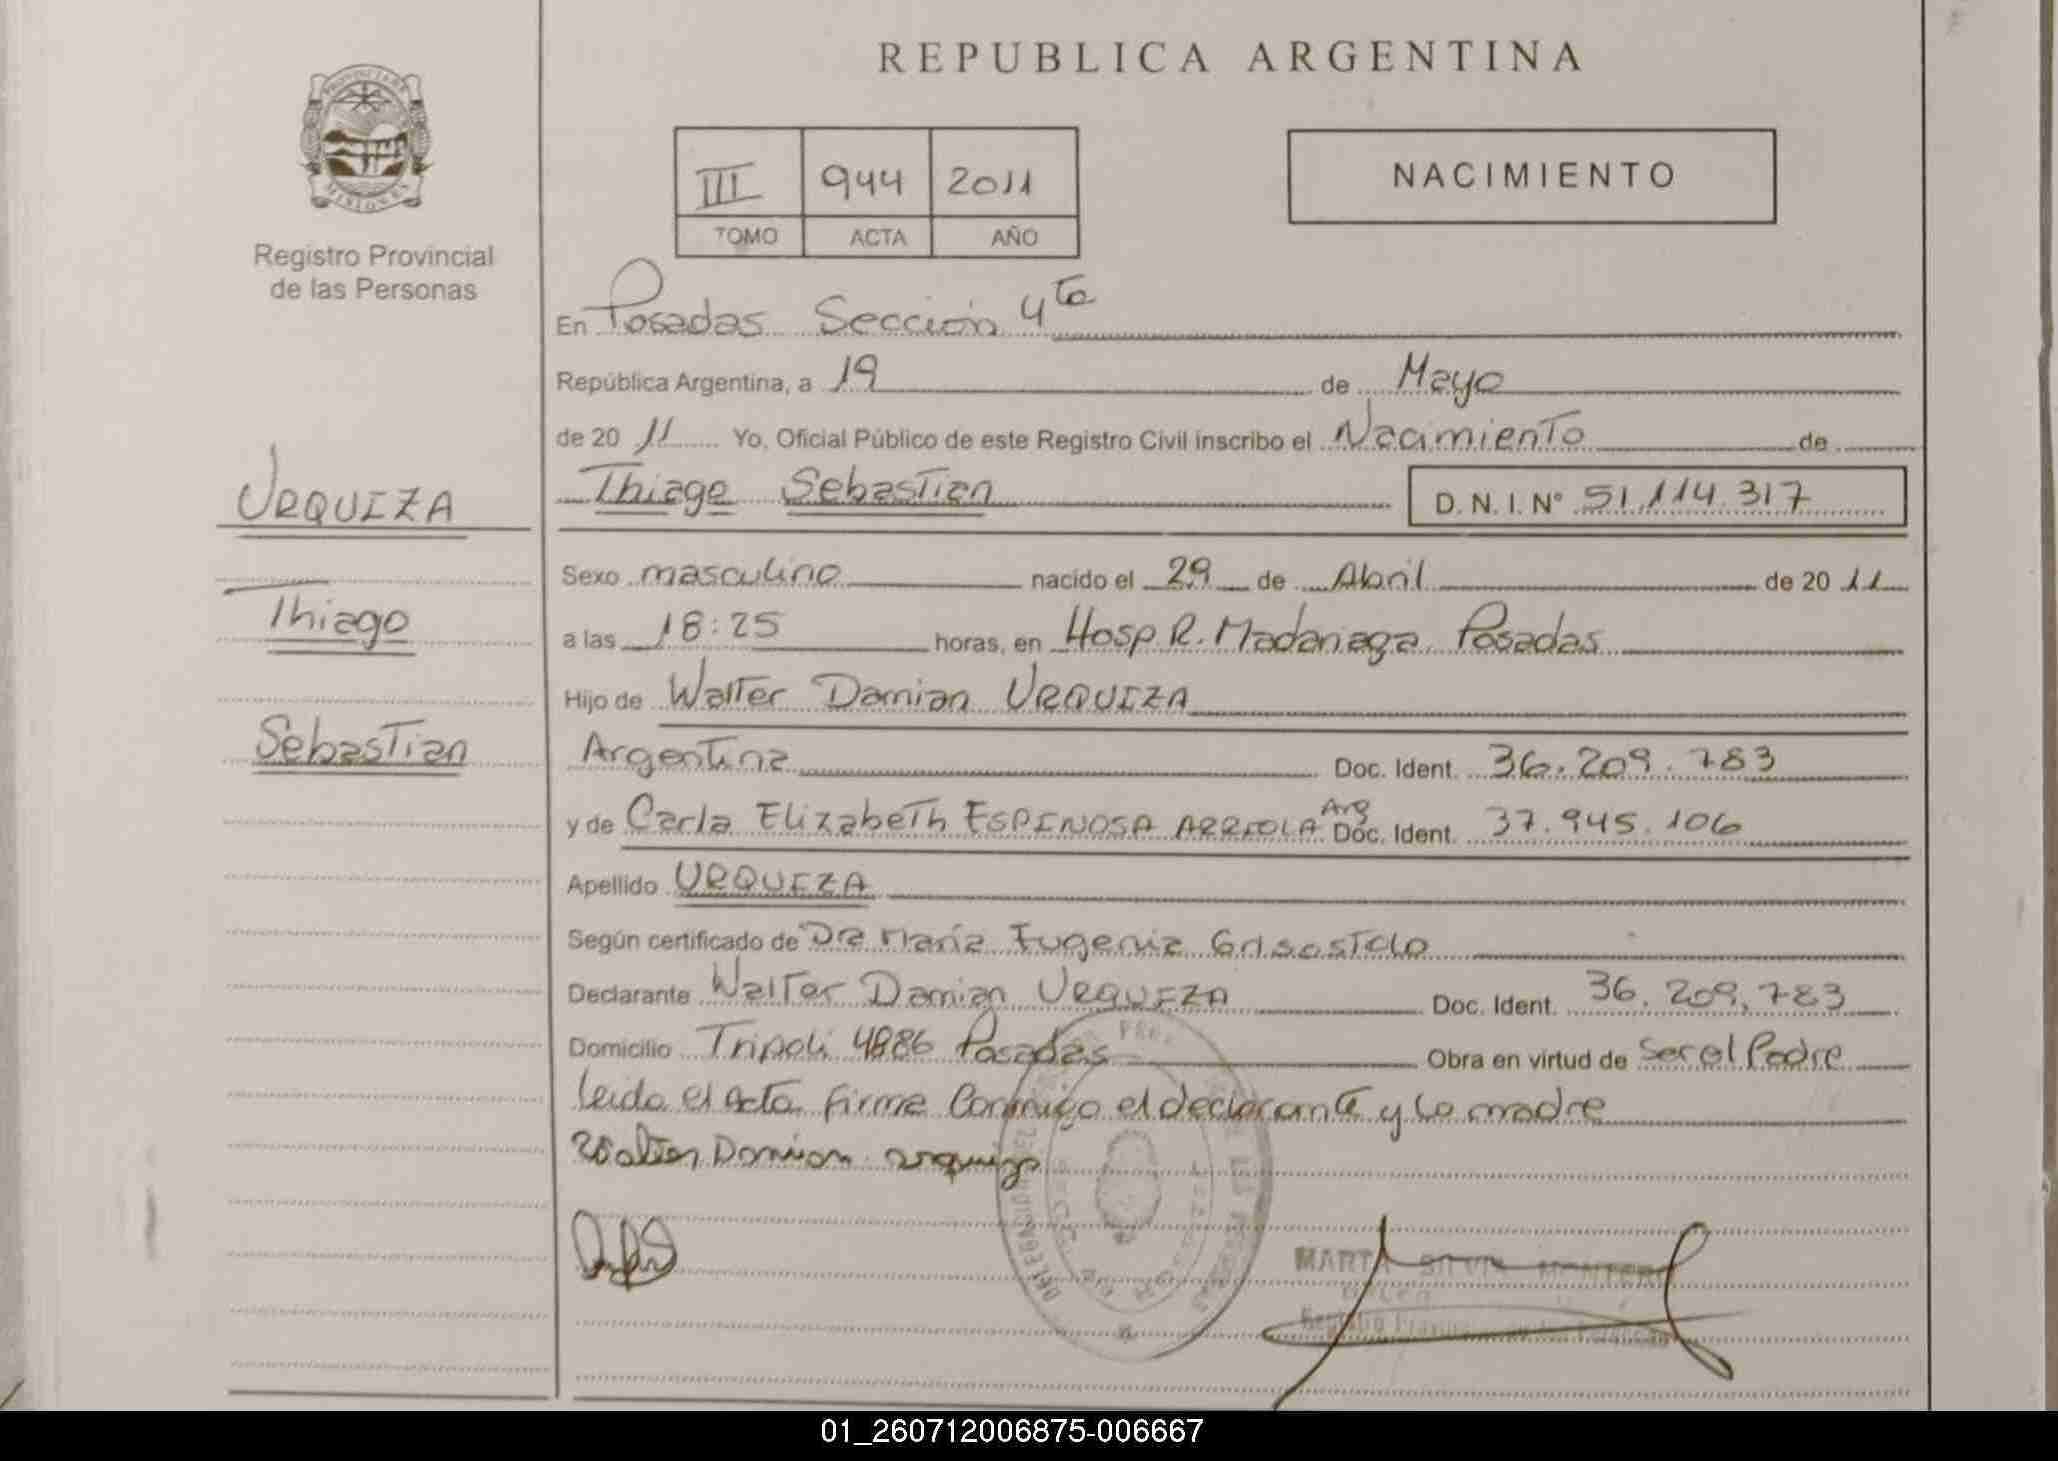 REPUBLICA ARGENTINA
PROVINCIA DE
MISIONES
Registro Provincial
de las Personas
III 944 2011
TOMO ACTA AÑO
NACIMIENTO
En Posadas Sección 4ta
República Argentina, a 19 de Mayo
de 20 11 Yo, Oficial Público de este Registro Civil inscribo el Nacimiento de
Thiago Sebastian D. N. I. Nº 51.114.317
URQUIZA
Thiago
Sebastian
Sexo masculino nacido el 29 de Abril de 20 11
a las 18:25 horas, en Hosp. R. Madariaga Posadas
Hijo de Walter Damian URQUIZA
Argentina Doc. Ident. 36.209.783
y de Carla Elizabeth ESPINOSA ARRIOLA Arg Doc. Ident. 37.945.106
Apellido URQUIZA
Según certificado de Dra María Eugenia
Declarante Walter Damian URQUIZA Doc. Ident. 36.209.783
Domicilio Tripoli 4886 Posadas Obra en virtud de Ser el Padre
leida el acta firma conmigo el declarante y la madre
Walter Damian urquiza
MARTA SILVIA MONTERO
01_260712006875-006667